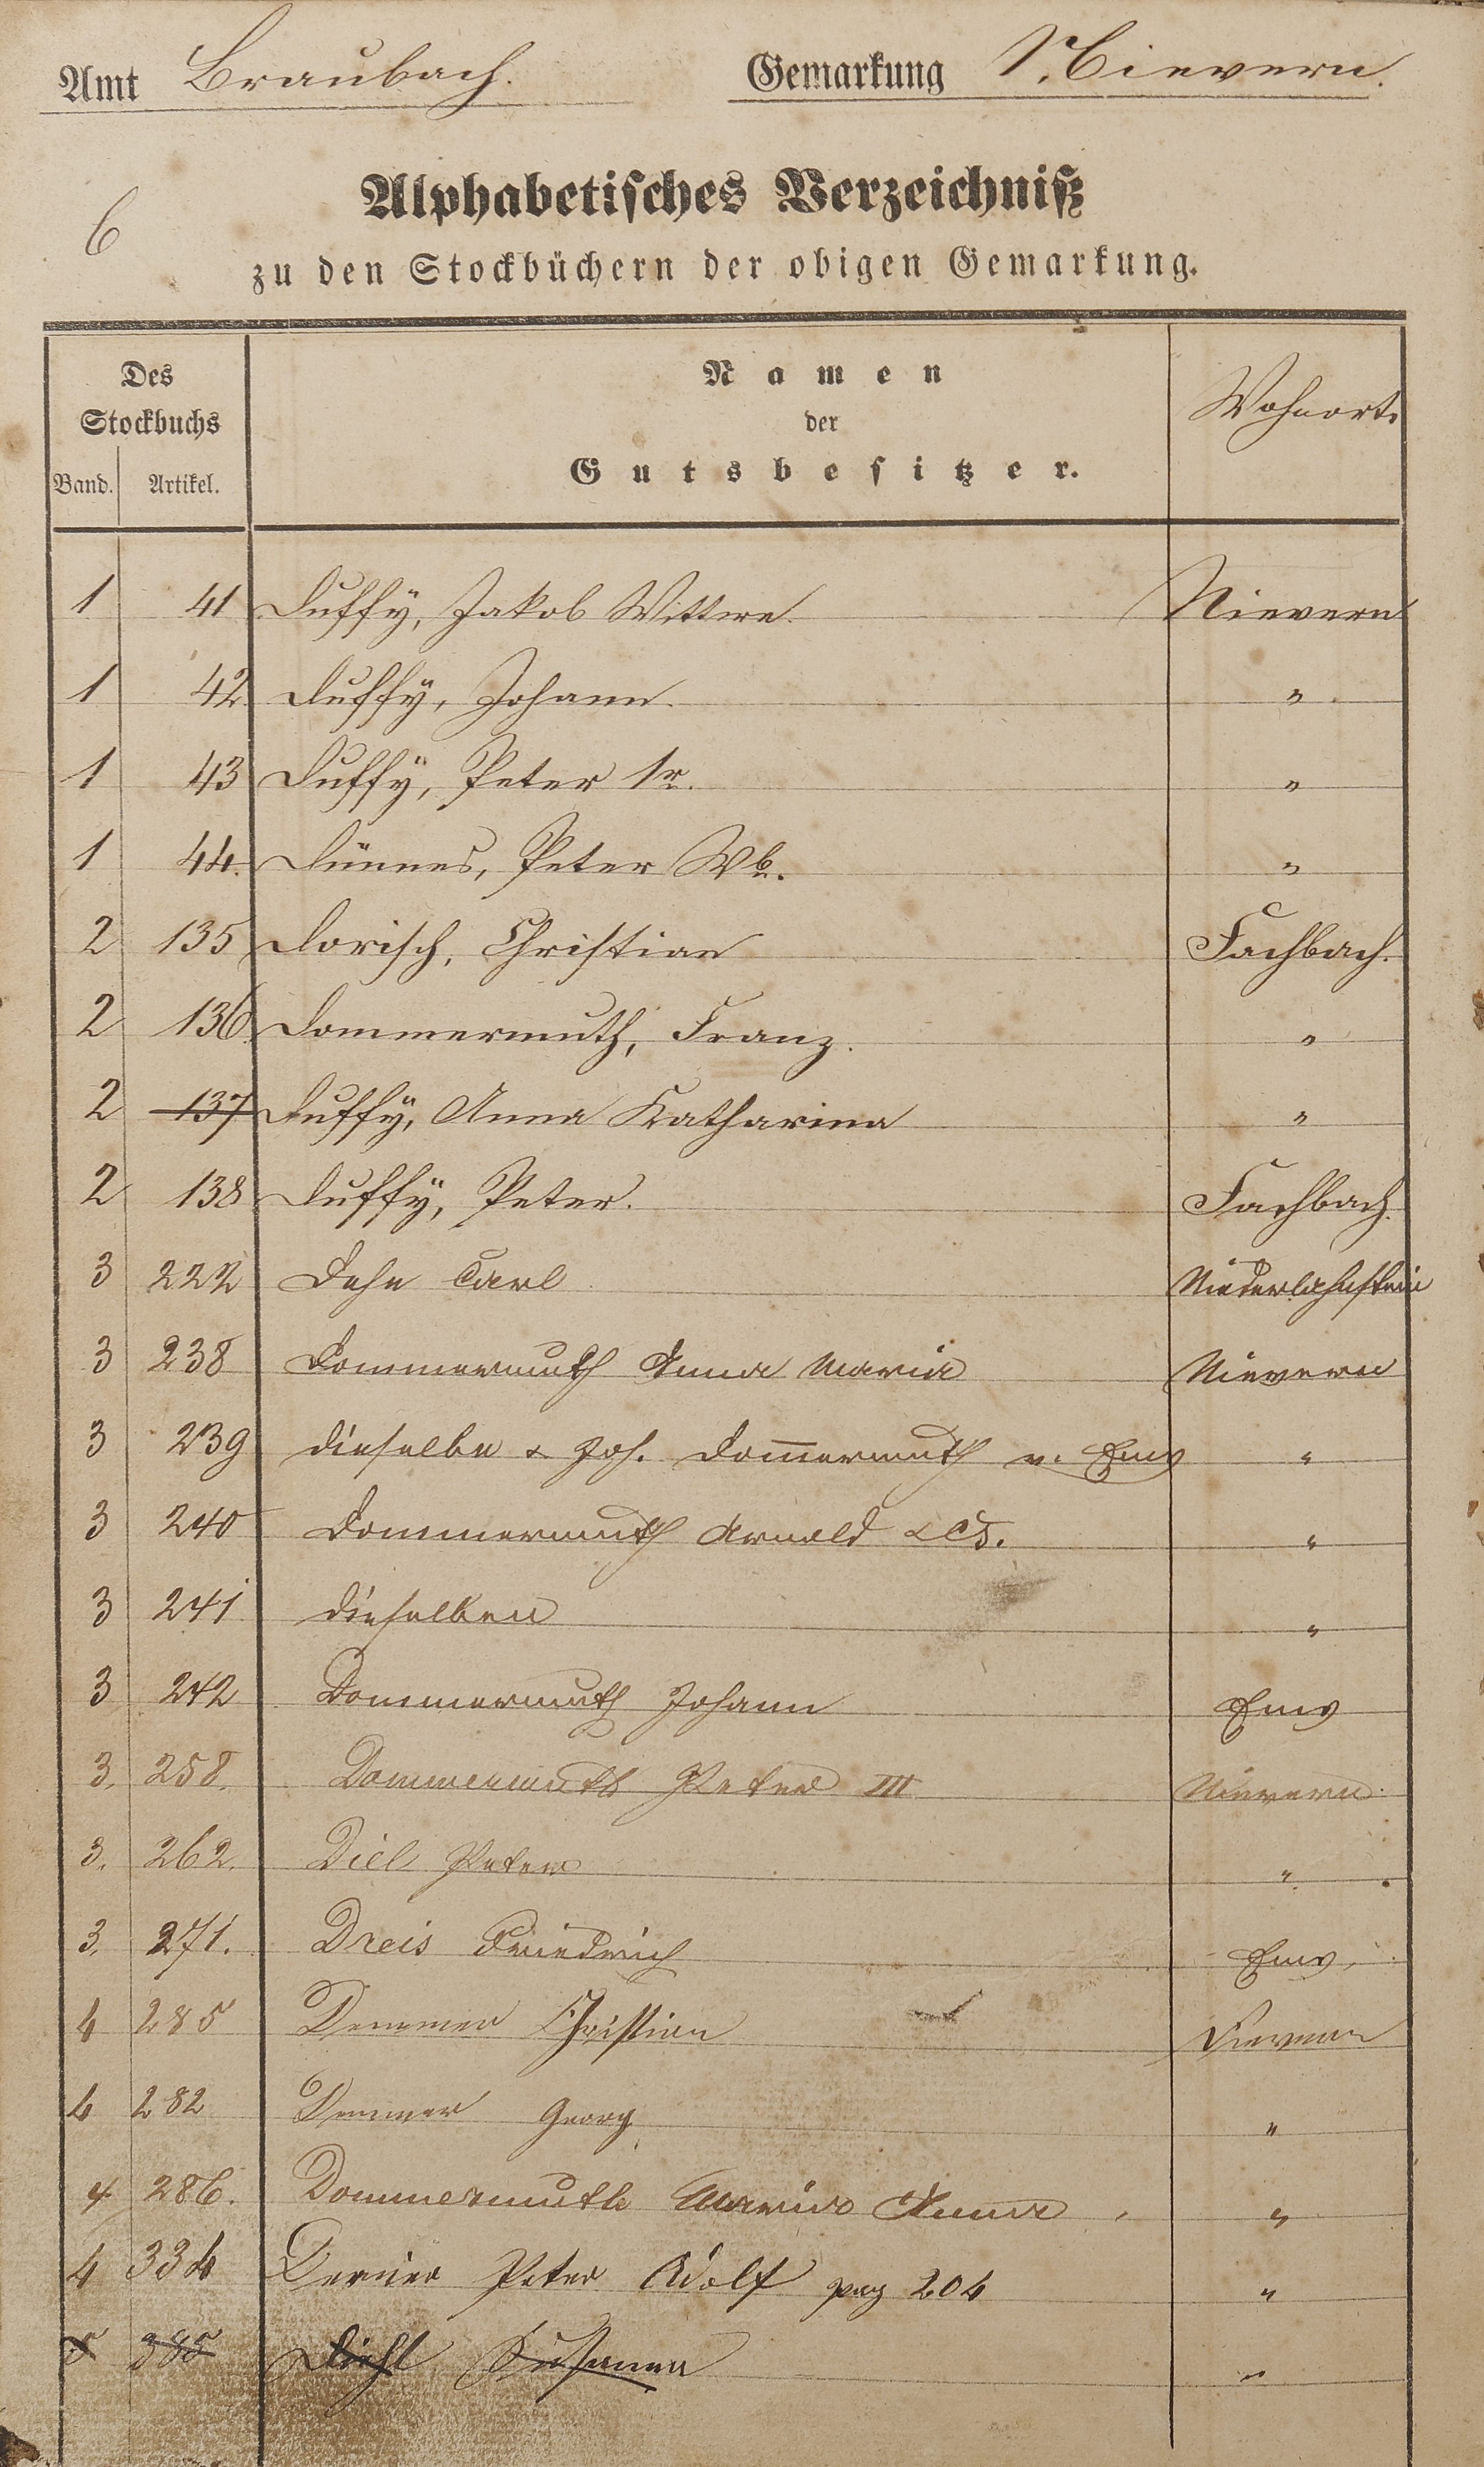 Amt Braubach. Gemarkung Nievern.
6
Alphabetisches Verzeichniß
zu den Stockbüchern der obigen Gemarkung.
Des Stockbuchs
Band. Artikel.
Namen
der
Gutsbesitzer.
Wohnort.
1 41 Duffÿ, Jakob Wittwe. Nievern
1 42 Duffÿ, Johann. "
1 43 Duffÿ, Peter 1r. "
1 44. Dünnes, Peter Wb. "
2 135 Dorisch, Christian Fachbach.
2 136. Dommermuth, Franz. "
2 137 Duffÿ, Anna Katharina "
2 138 Duffÿ, Peter. Fachbach.
3 222 Dehe Carl Niederlahnstein
3 238 Dommermuth Anna Maria Nievern
3 239 dieselbe & Joh. Dom̅ermuth v. Ems "
3 240 Dommermuth Arnold & Cs. "
3 241 dieselben "
3 242 Dommermuth Johann Ems
3. 258. Dommermuth Peter III Nievern
3. 262. Diel Peter "
3. 271. Dreis Friedrich Ems,
4 285 Demmer Christian Nievern
4 282 Demmer Georg "
4 286. Dommermuth Maria Anna "
4 334 Peter Adolf pag 204 "
5 385 Diehl Susanna "